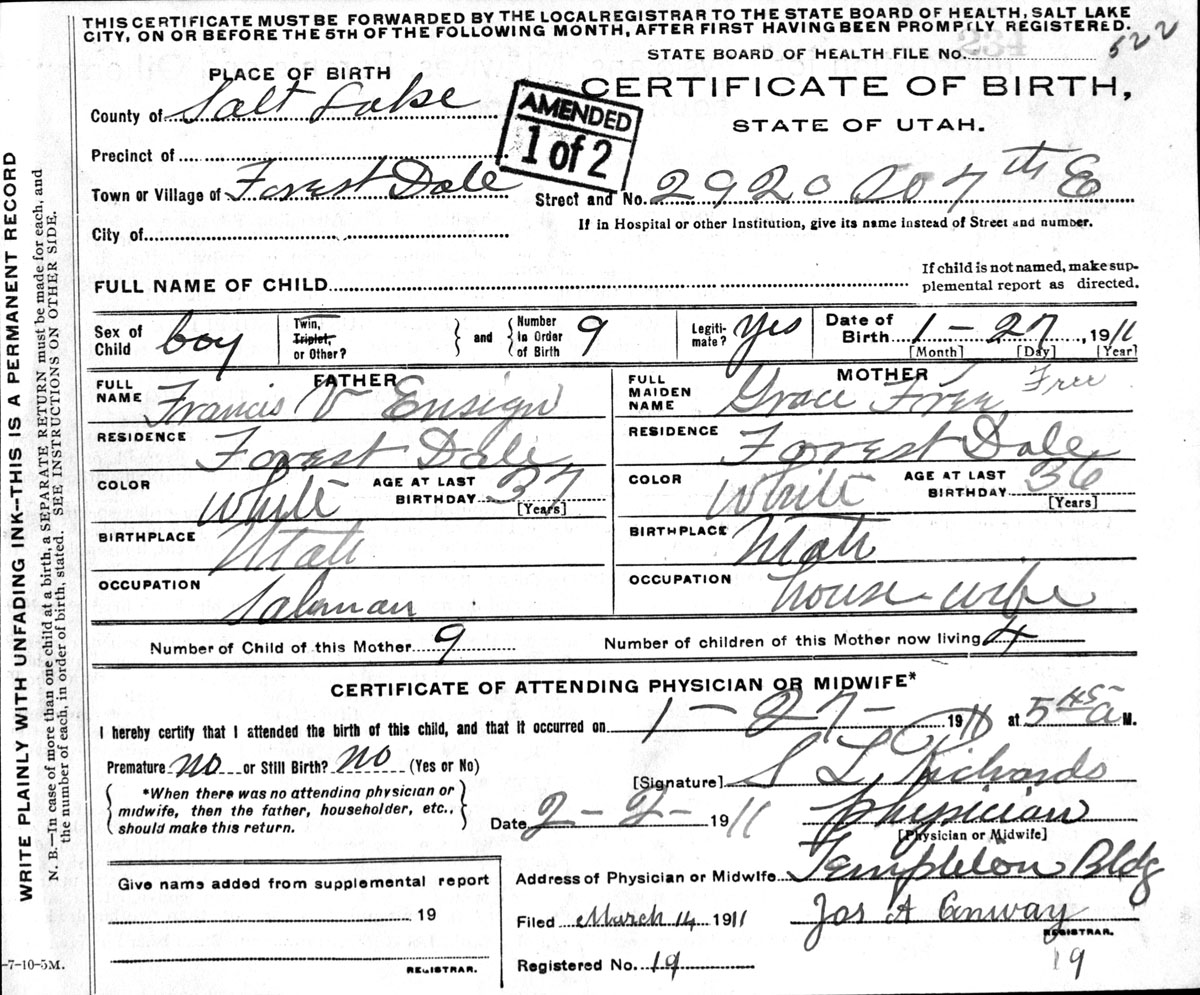 THIS CERTIFICATE MUST BE FORWARDED BY THE LOCAL REGISTRAR TO THE STATE BOARD OF HEALTH, SALT LAKE
CITY, ON OR BEFORE THE 5TH OF THE FOLLOWING MONTH, AFTER FIRST HAVING BEEN PROMPTLY REGISTERED.
522
STATE BOARD OF HEALTH FILE No.
PLACE OF BIRTH
CERTIFICATE OF BIRTH,
County of Salt Lake
AMENDED
1 of 2
STATE OF UTAH.
Precinct of
Town or Village of Forest Dale
Street and No. 2920 So 7th E
City of
If in Hospital or other Institution, give its name instead of Street and number.
FULL NAME OF CHILD
If child is not named, make sup-
plemental report as directed.
Sex of Child boy
Twin, Triplet, or Other?
and
Number in Order of Birth 9
Legiti-mate? Yes
Date of Birth 1 - 27, 1911
[Month] [Day] [Year]
FATHER
FULL NAME Francis V Ensign
MOTHER
FULL MAIDEN NAME Grace Free Free
RESIDENCE Forest Dale
RESIDENCE Forest Dale
COLOR White
AGE AT LAST BIRTHDAY 37
[Years]
COLOR White
AGE AT LAST BIRTHDAY 36
[Years]
BIRTHPLACE Utah
BIRTHPLACE Utah
OCCUPATION Salesman
OCCUPATION house-wife
Number of Child of this Mother 9
Number of children of this Mother now living 4
CERTIFICATE OF ATTENDING PHYSICIAN OR MIDWIFE*
I hereby certify that I attended the birth of this child, and that it occurred on 1-27- 1911 at 5 45 a M.
Premature no or Still Birth? no (Yes or No)
[Signature] S L Richards
*When there was no attending physician or
midwife, then the father, householder, etc.,
should make this return.
Date 2-2- 1911
physician
[Physician or Midwife]
Give name added from supplemental report
19
REGISTRAR.
Address of Physician or Midwife Templeton Bldg
Filed March 14 1911
Jos A Conway
REGISTRAR.
Registered No. 19
19
-7-10-5M.
WRITE PLAINLY WITH UNFADING INK--THIS IS A PERMANENT RECORD
N. B.—In case of more than one child at a birth, a SEPARATE RETURN must be made for each, and
the number of each, in order of birth, stated. SEE INSTRUCTIONS ON OTHER SIDE.